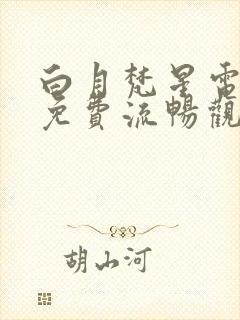 白月梵星電
免費流暢觀
胡山河